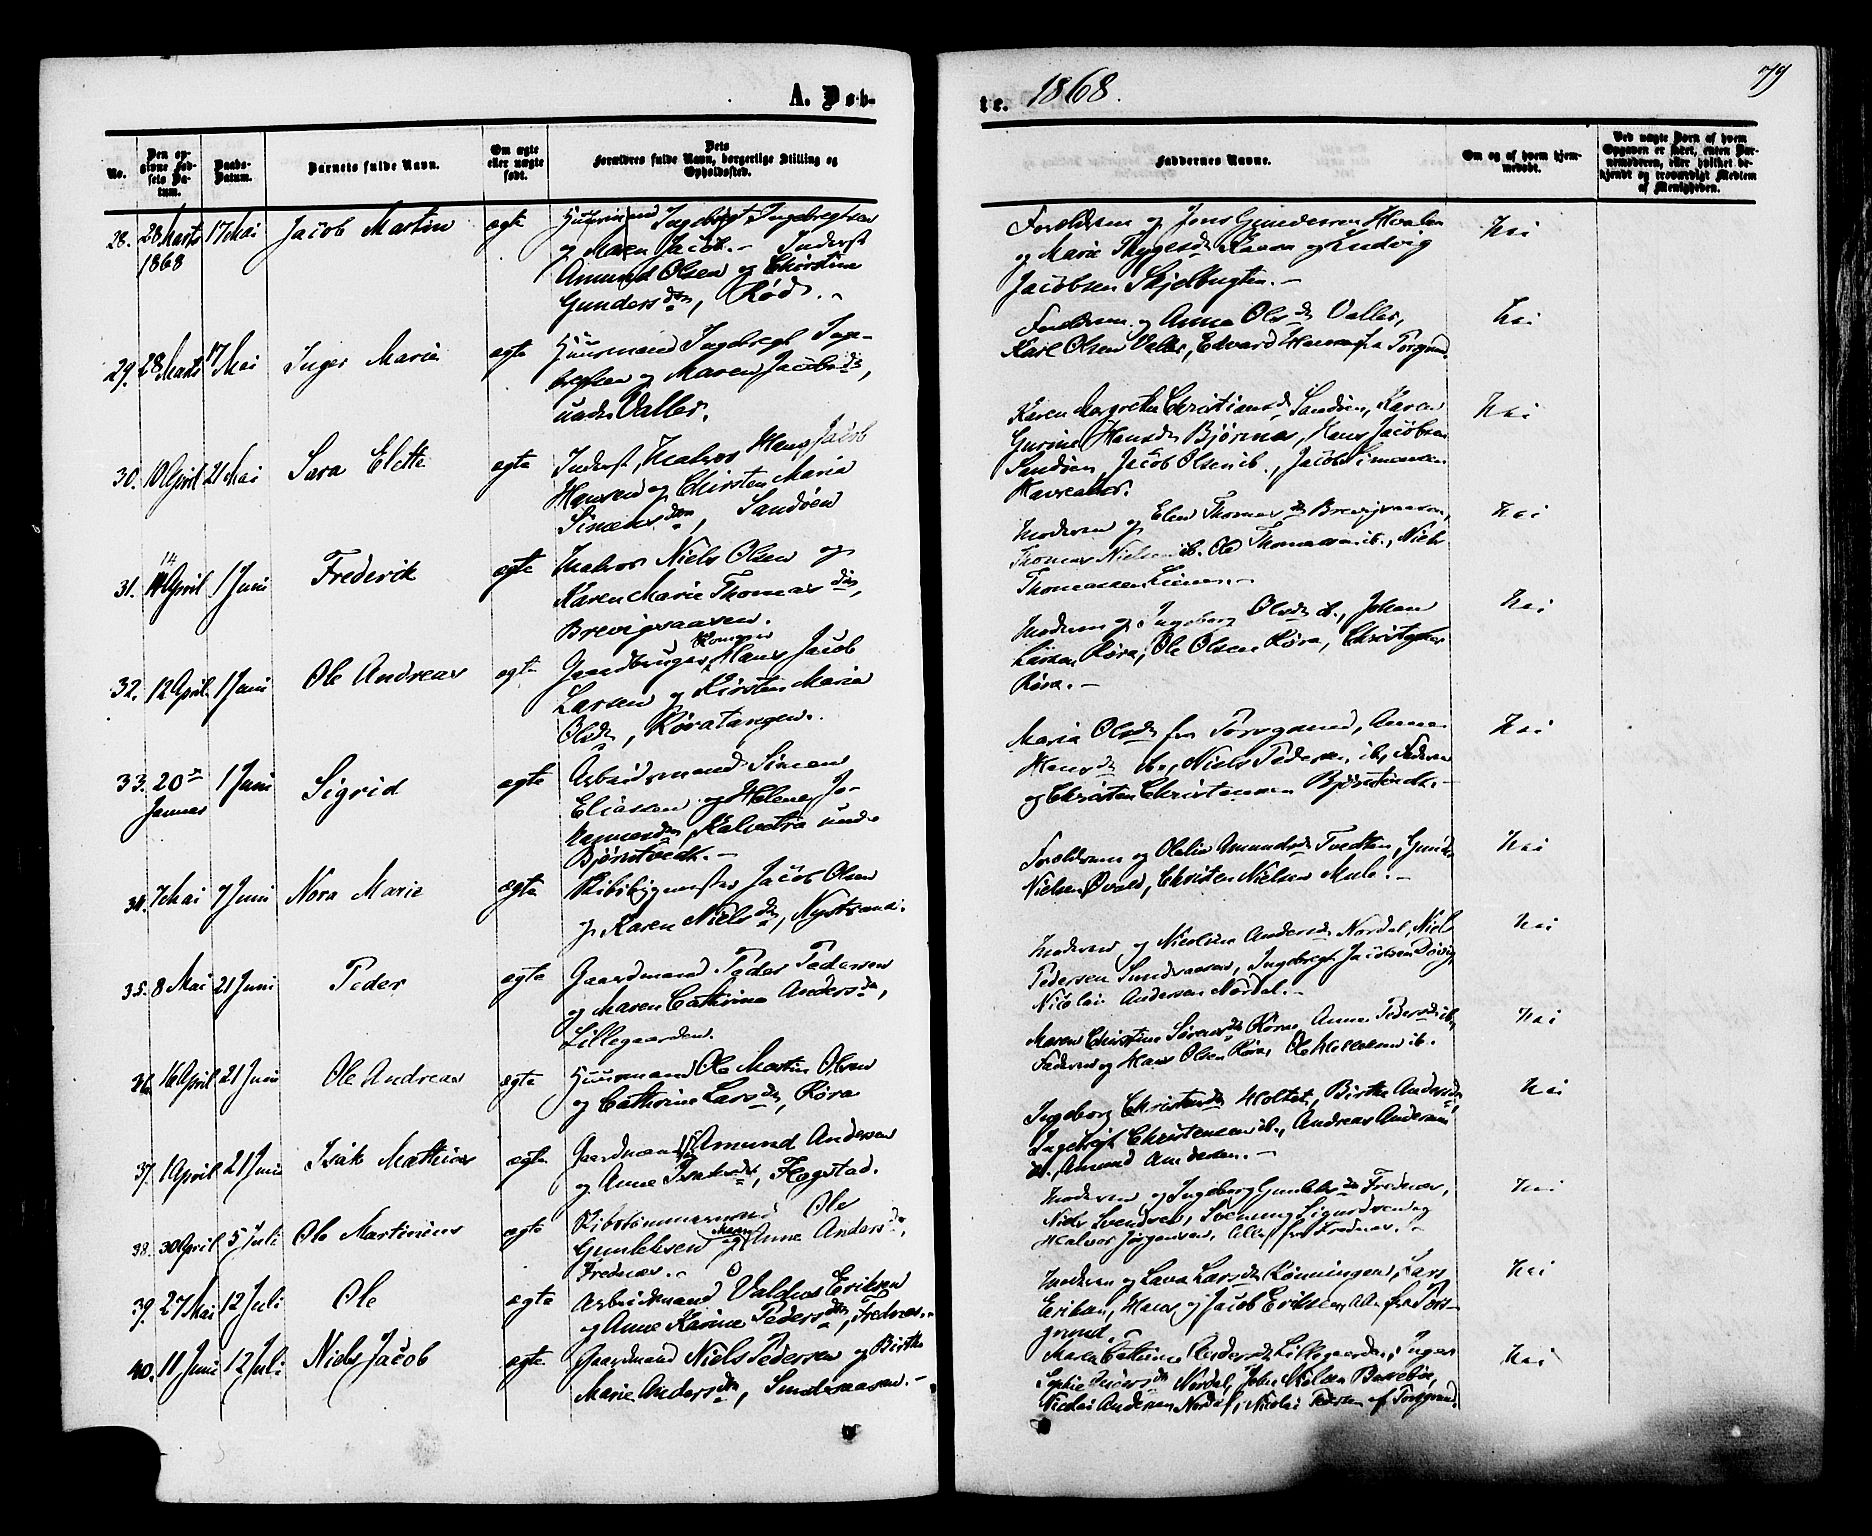 A. Døb-
te. 1868.
79
No.
Den op-
givne Fød-
sels Da-
tum.
Daabs-
Datum.
Barnets fulde Navn.
Om ægte
eller uægte
født.
Dets
Forældres fulde Navn, borgerlige Stilling og
Opholdssted.
Faddernes Navne.
Om og af hvem hjem-
medøbt.
Ved uægte Børn af hvem
Opgaven er skeet, enten Bar-
nemoderen, eller hvilket be-
kjendt og troværdigt Medlem
af Menigheden.
28. 28 Marts 1868
17 Mai
Jacob Martin
ægte
Huusmand Ingebregt Ingebregtsen
og Maren Jacob. – Inderst
Amund Olsen og Christine
Gundersdtr, Rød. –
Forældrene og Jens Gundersen
og Marie Thygesdtr og Ludvig
Jacobsen Skjelbugten. –
Nei
29. 28 Marts
17 Mai
Inger Maria
ægte
Huusmand Ingebregt Inge-
bregtsen og Maren Jacobsdtr,
under Valler.
Forældrene og Anna Olsdtr Valler,
Karl Olsen Valler, Edvard Hansen fra Porsgrund.
Nei
30. 10 April
21 Mai
Sara Elette
ægte
Inderst, Matros Hans Jacob
Hansen og Christen Maria
Simensdtr, Sandøen
Karen Margrethe Christiansdtr Sandøen, Karen
Gurine Hansdtr Bjørnnes, Hans Jacobsen
Sandøen, Jacob Olsen ib., Jacob Simonsen
Nei
31. 14 April
1 Juni
Frederik
ægte
Matros Niels Olsen og
Karen Marie Thomasdtr,
Brevigsaasen.
Moderen og Elen Thomasdtr Brevigsaasen,
Thomas Nielsen ib. Ole Thomassen ib., Niels
Thomassen
Nei
32. 12 April
1 Juni
Ole Andreas
ægte
Gaardbruger Hans Jacob
Larsen og Kirsten Maria
Olsdtr, Røratangen.
Moderen og Ingeborg Olsdtr ib., Johan
Larsen Røra, Ole Olsen Røra, Christopher
Røra. –
Nei
33. 20de Januar
1 Juni
Sigrid
ægte
Arbeidsmand Simon
Eliassen og Helene Jo-
hannesdtr, Kalvetra under
Bjørntvedt. –
Maria Olsdtr fra Porsgrund, Anne
Hansdtr ib., Niels Pedersen ib., Faderen
og Christen Christensen Bjørntvedt. –
Nei
34. 7 Mai
7 Juni
Nora Marie
ægte
Skibsbygmester Jacob Olsen
og Karen Nielsdtr, Nystrand.
Forældrene og Olalia Amundsdtr Tvedten,
Nielsen Ørvald, Christen Nielsen Mule. –
Nei
35. 8 Mai
21 Juni
Peder
ægte
Gaardmand Peder Pedersen
og Maren Cathrine Andersdtr,
Lillegaarden.
Moderen og Nicoline Andersdtr Nordal, Niels
Pedersen Sundsaasen, Ingebregt Jacobsen Døvig,
Nicolai Andersen Nordal. –
Nei
36. 16 April
21 Juni
Ole Andreas
ægte
Huusmand Ole Martin Olsen
og Cathrine Larsdtr, Røra
Maren Christine Sørensdtr Røra, Anne Pedersdtr ib.,
Faderen og Hans Olsen Røra, Ole ib.
Nei
37. 1 April
21 Juni
Isak Mathias
ægte
Gaardmand Amund Andersen
og Anne Isaksdtr, Flogstad.
Ingeborg Christensdtr Holtet, Birthe Andersdtr,
Ingebrigt Christensen ib., Andreas Andersen
ib., Amund Andersen. –
Nei
38. 30 April
5 Juli
Ole Martinius
ægte
Skibstømmermand Ole
Gunleksen og Anne Andersdtr,
Frednæs. –
Moderen og Ingeborg Gunleksdtr Frednæs,
Niels Svendsen, Svenning Sigurdsen og
Halvor Jørgensen, Alle fra Frednæs. –
Nei
39. 27 Mai
12 Juli
Ole
ægte
Arbeidsmand Eriksen
og Anne Karine Pedersdtr, Frednæs. –
Moderen og Lava Larsdtr Rønningen, Lars
Eriksen, Hans og Jacob Eriksen, Alle fra Pors-
grund. –
Nei
40. 11 Juni
12 Juli
Niels Jacob
ægte
Gaardmand Niels Pedersen og Birthe
Marie Andersdtr, Sundsaasen. –
Maren Cathrine Andersdtr Lillegaarden, Inger
Sophie Andersdtr Nordal, John Nilsen Bassebo,
Nicolai Andersen Nordal, Nicolai Pedersen af Porsgrund.
Nei